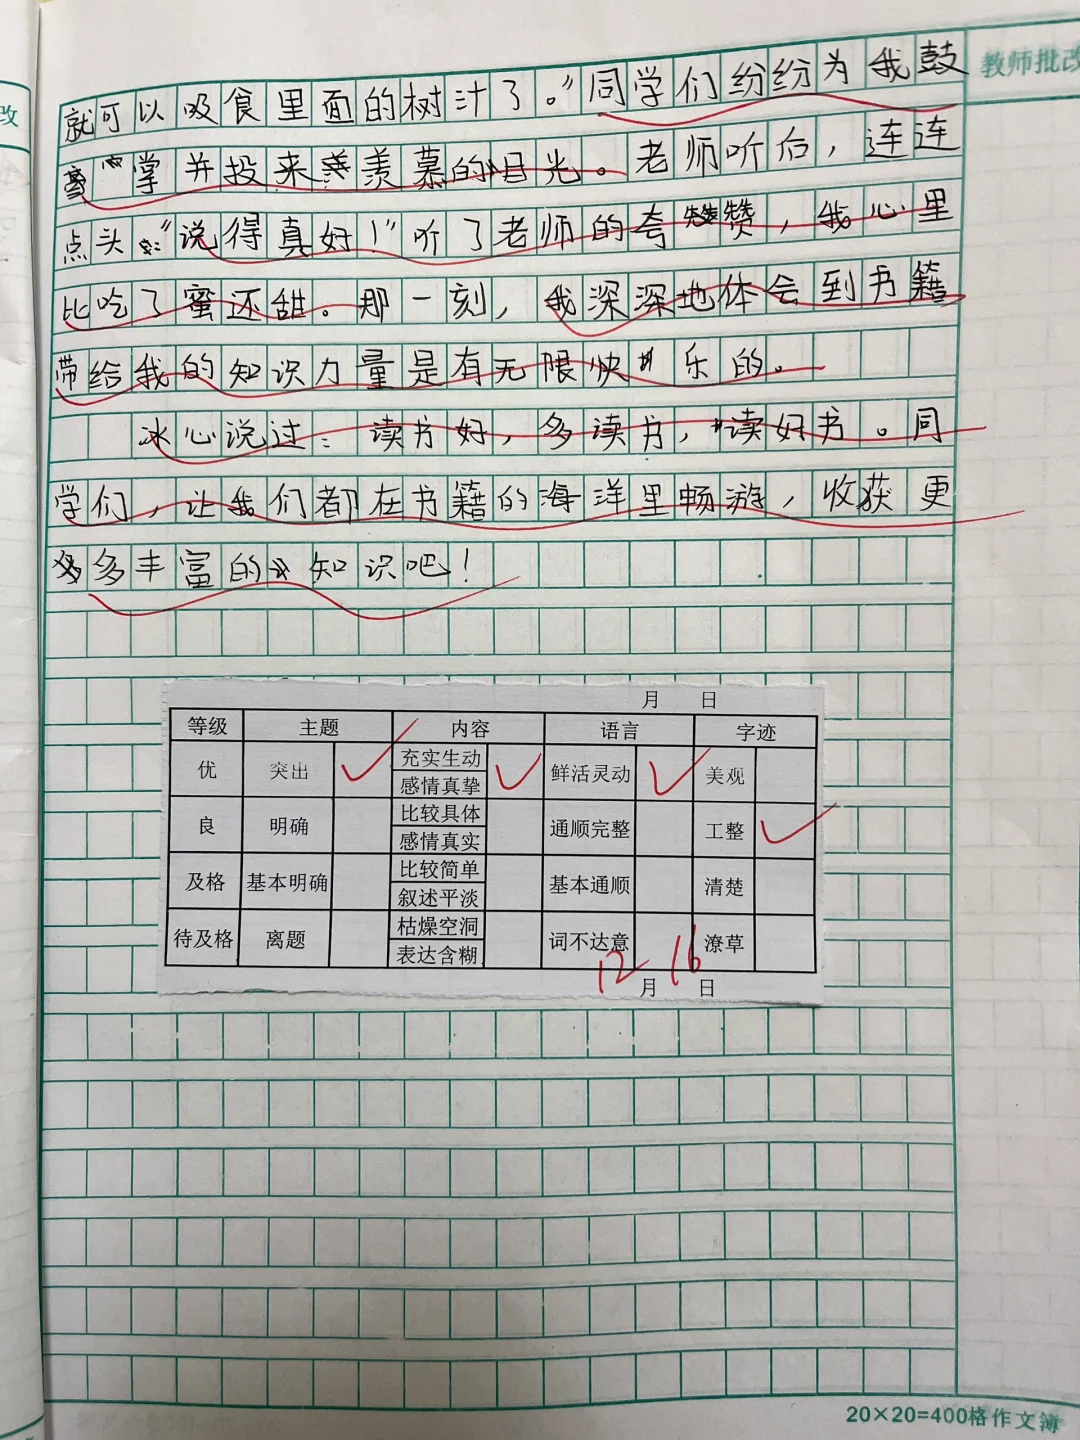 改
教师批改
就可以吸食里面的树汁了。”同学们纷纷为我鼓
掌并投来羡慕的目光。老师听后，连连
点头：“说得真好！”听了老师的夸赞，我心里
比吃了蜜还甜。那一刻，我深深地体会到书籍
带给我的知识力量是有无限快乐的。
冰心说过：读书好，多读书，读好书。同
学们，让我们都在书籍的海洋里畅游，收获更
多丰富的知识吧！
月 日
等级 主题 内容 语言 字迹
优 突出 充实生动 感情真挚 鲜活灵动 美观
良 明确 比较具体 感情真实 通顺完整 工整
及格 基本明确 比较简单 叙述平淡 基本通顺 清楚
待及格 离题 枯燥空洞 表达含糊 词不达意 潦草
12月16日
20×20=400格作文簿